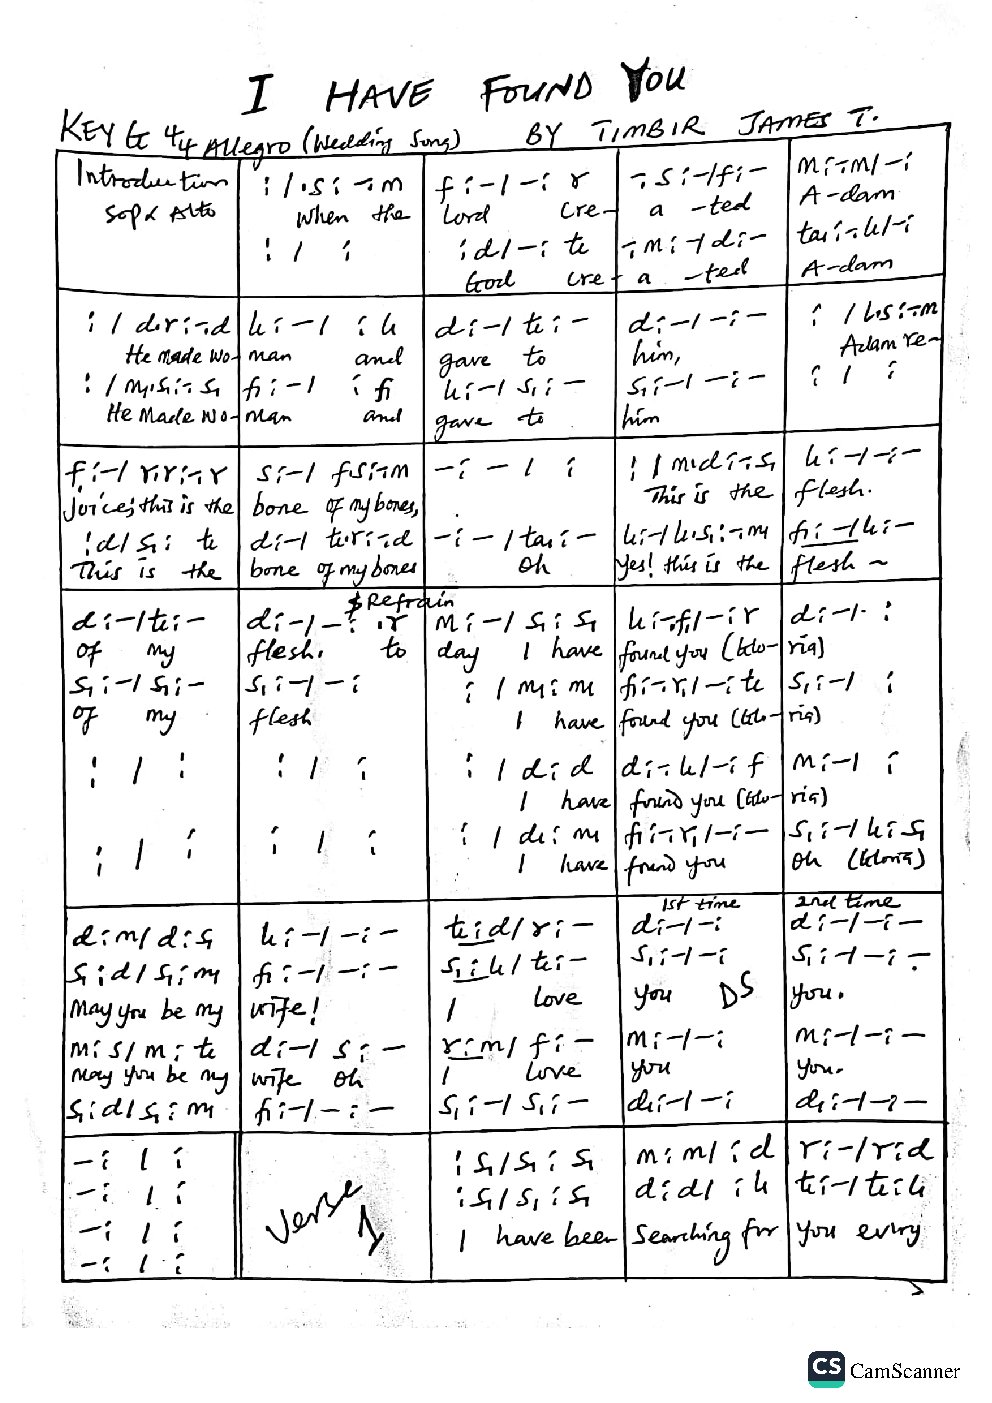 I HAVE FOUND YOU
KEY G 4/4 Allegro (Wedding Song) BY TIMBIR JAMES T.
Introduction : / .s : -.m f : -/ - : r -. s : -/ f : - m : -. m/ - :
Sop & Alto When the Lord Cre- a -ted A-dam
: / : : d/ - : t -. m : -/ d : - ta : -. l/ - :
God Cre- a -ted A-dam
: / d.r : -.d l : -/ : l d : -/ t : - d : -/ - : - : / l.s : -.m
He made wo- man and gave to him, Adam re-
: / m.s : -.s f : -/ : f l : -/ s : - s : -/ - : - : / :
He Made Wo- man and gave to him
f : -/ r.r : -.r s : -/ f.s : -.m - : - / : : / m.d : -.s l : -/ - : -
joice; this is the bone of my bones, This is the flesh.
: d/ s : t d : -/ t.r : -.d - : - / ta : - l : -/ l.s : -.m f : -/ l : -
This is the bone of my bones Oh Yes! this is the flesh ~
$ Refrain
d : -/ t : - d : -/ - : .r m : -/ s : s l : -. f/ - : r d : -/ :
of my flesh. to day I have found you (Glo- ria)
s : -/ s : - s : -/ - : : / m : m f : -. r/ - : t s : -/ :
of my flesh I have found you (Glo- ria)
: / : : / : : / d : d d : -. l/ - : f m : -/ :
I have found you (Glo- ria)
: / : : / : : / d : m f : -. r/ - : - s : -/ l : s
I have found you Oh (Gloria)
1st time 2nd time
d : m/ d : s l : -/ - : - t : d/ r : - d : -/ - : d : -/ - : -
s : d/ s : m f : -/ - : - s : l/ t : - s : -/ - : s : -/ - : -
May you be my wife! I love you DS you.
m : s/ m : t d : -/ s : - r : m/ f : - m : -/ - : m : -/ - : -
May you be my wife Oh I love you you.
s : d/ s : m f : -/ - : - s : -/ s : - d : -/ - : d : -/ - : -
- : / : : s/ s : s m : m/ : d r : -/ r : d
- : / : : s/ s : s d : d/ : l t : -/ t : l
- : / : Verse 1 I have been Searching for you every
- : / :
CS CamScanner